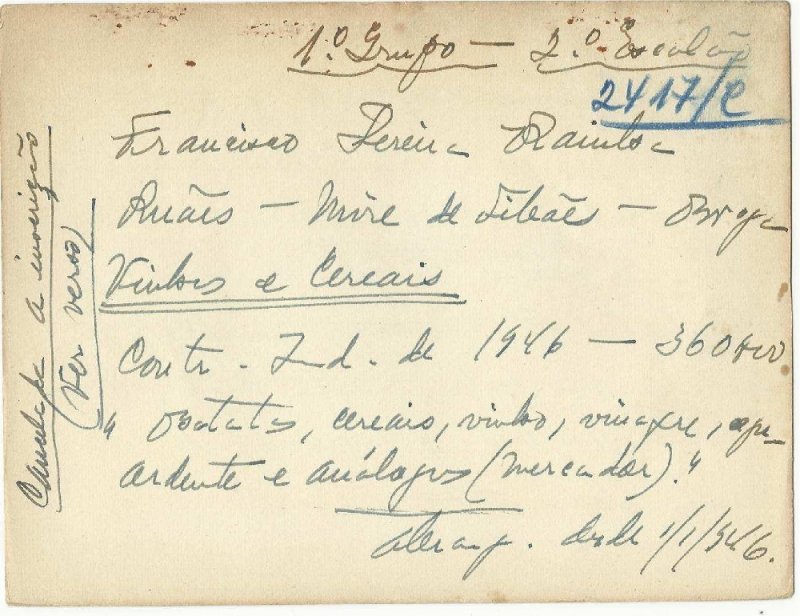 1.º Grupo — 2.º Escalão
2417/C
Francisco Pereira Rainha
Ruães — Mire de Tibães — Braga
Vinhos e Cereais
Contr. Ind. de 1946 — 360$00
"Batatas, cereais, vinho, vinagre, agu-
ardente e análogos (mercador)."
desde 1/1/946.
Cancelada a inscrição
(Ver verso)